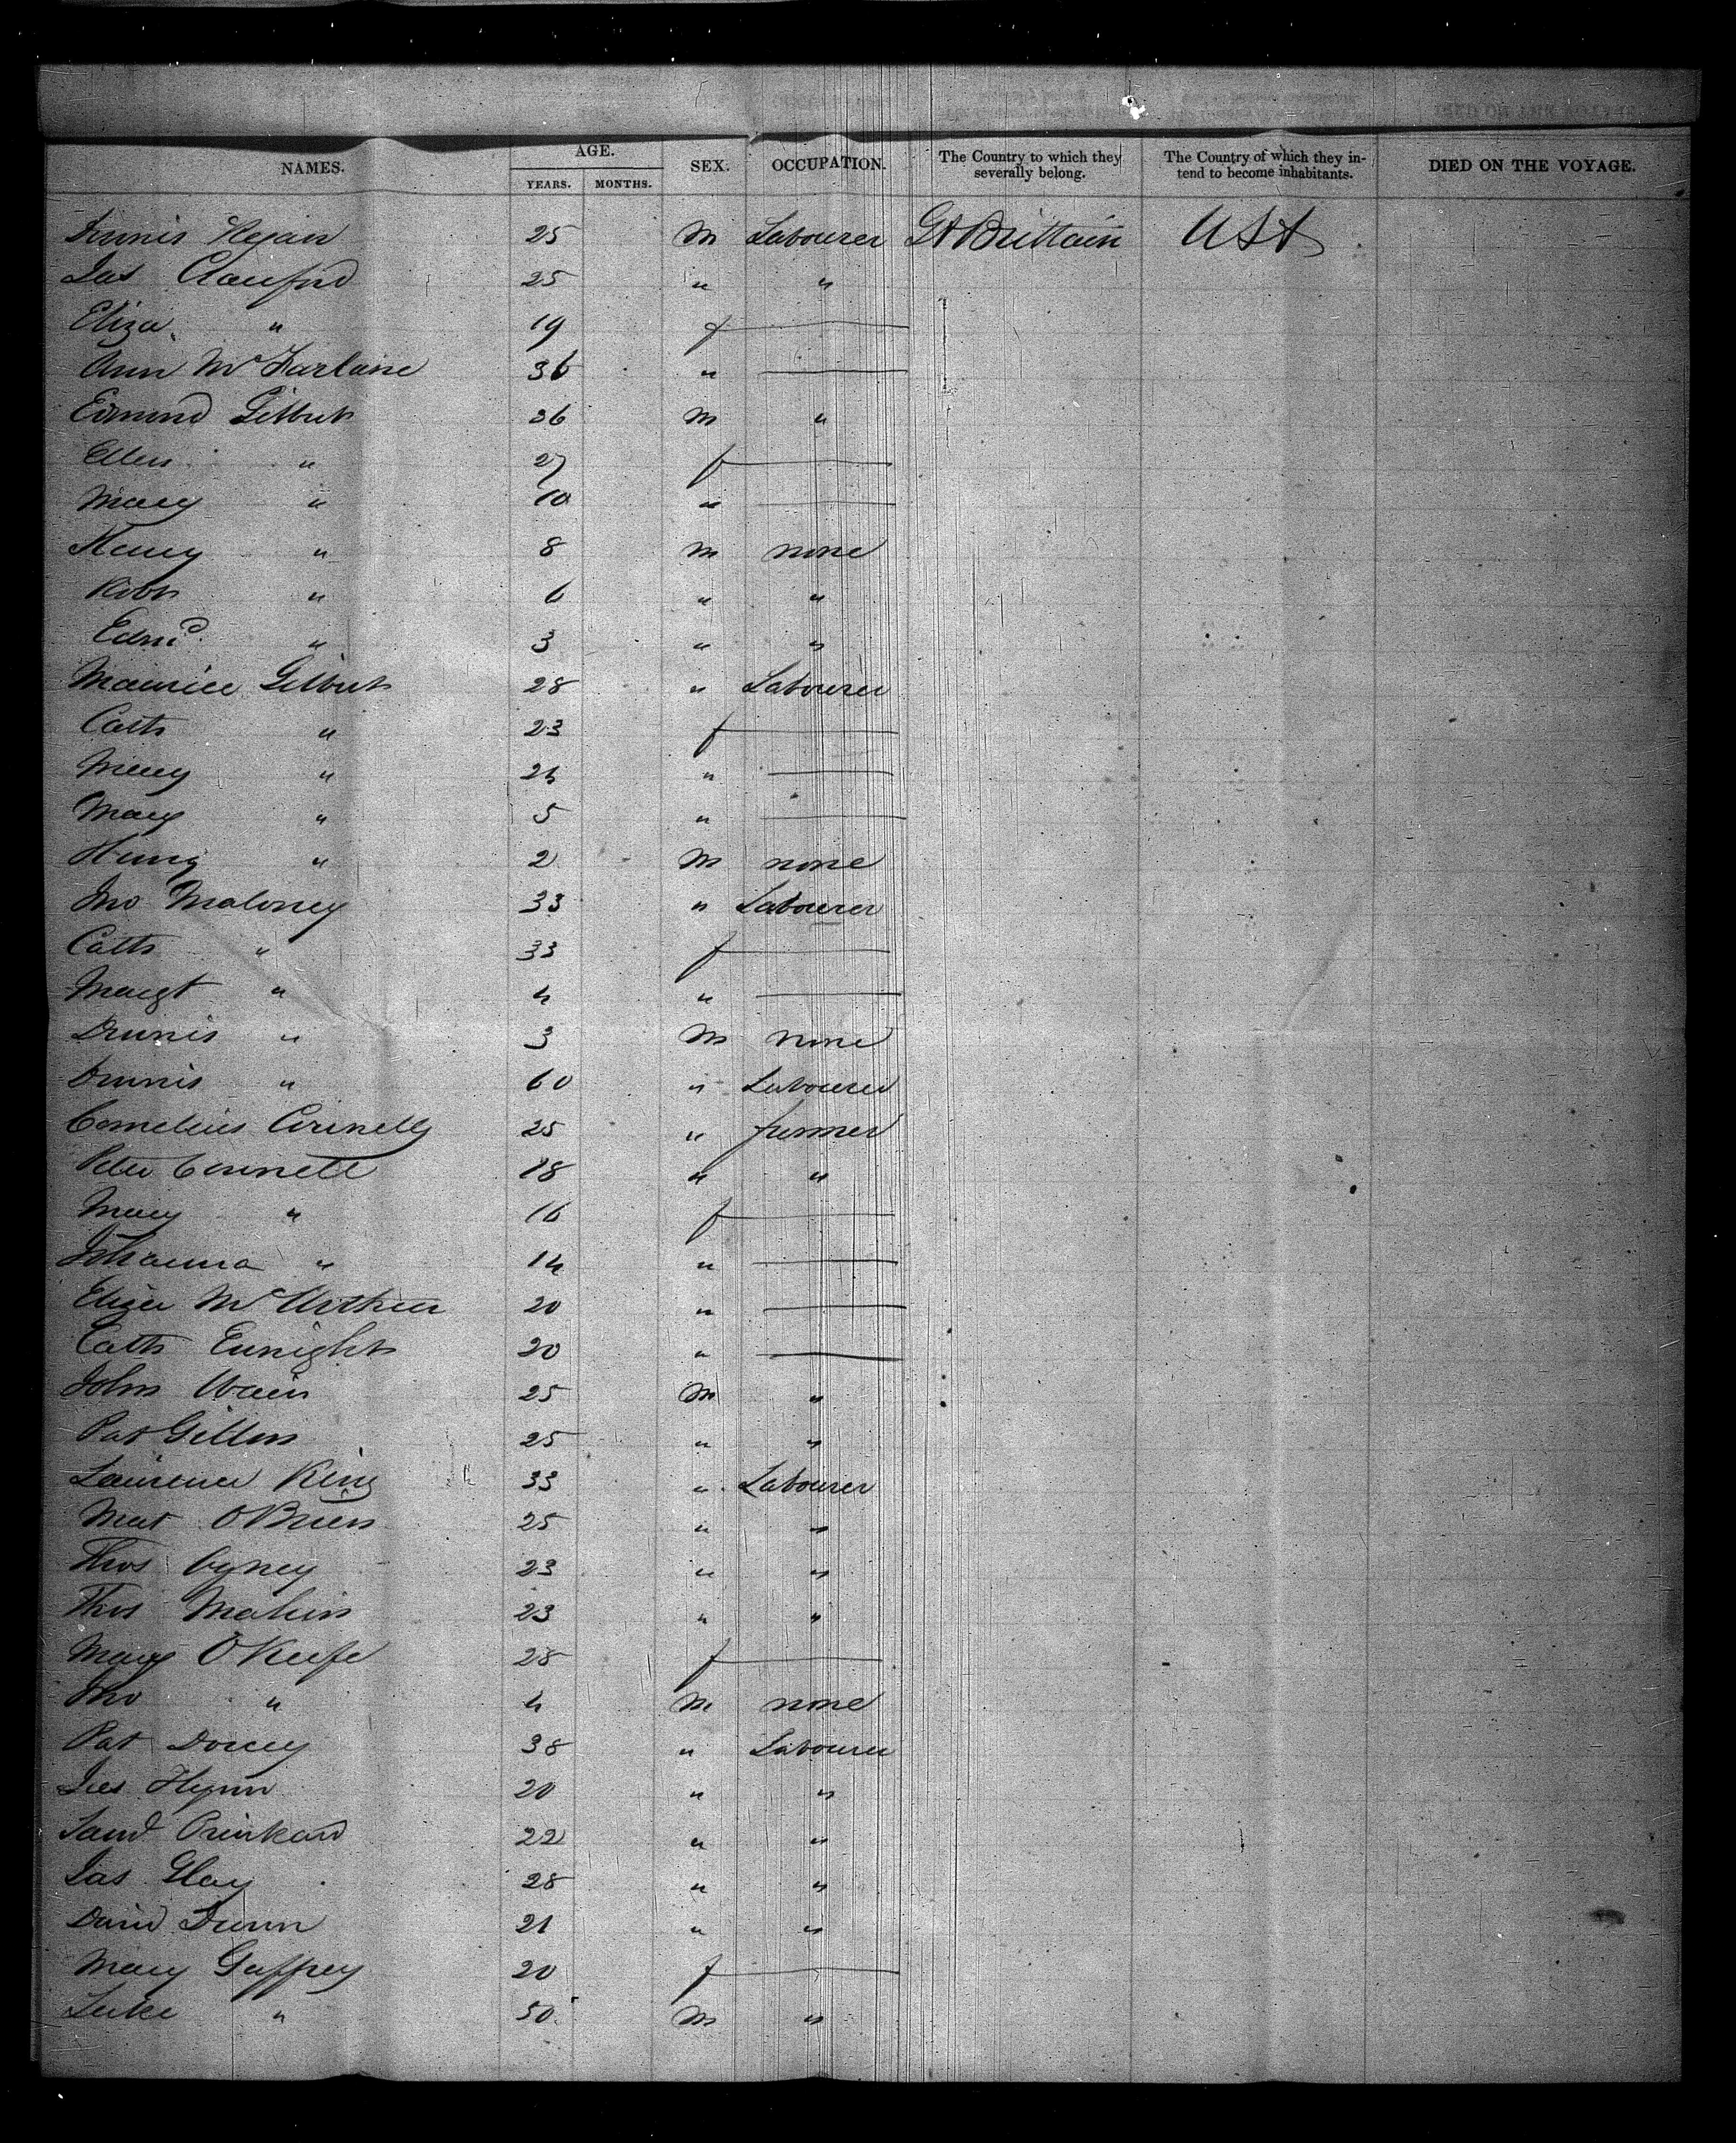 NAMES. AGE. SEX. OCCUPATION. The Country to which they severally belong. The Country of which they intend to become inhabitants. DIED ON THE VOYAGE.
YEARS. MONTHS.
Dennis Hegan 25 M Labourer Gt Brittain USA
Jas Crawford 25 " "
Eliza " 19 f
Ann McFarlane 36 "
Edmond Gilbert 36 M "
Ellen " 27 f
Mary " 10 "
Henry " 8 M none
Robt " 6 " "
Edmd " 3 " "
Maurice Gilbert 28 " Labourer
Cath " 23 f
Mary " 24 "
Mary " 5 "
Henry " 2 M none
Jno Maloney 33 " Labourer
Cath " 33 f
Margt " 4 "
Dennis " 3 M none
Dennis " 60 " Labourer
Cornelius Connell 25 " farmer
Peter Connell 18 " "
Mary " 16 f
Johanna " 14 "
Eliza McArthur 20 "
Cath Enright 20 "
John 25 M "
Pat Gillen 25 " "
Laurence King 33 " Labourer
Mat OBrien 25 " "
Thos 23 " "
Thos Mahon 23 " "
Mary OKeefe 28 f
Jno " 4 M none
Pat Dorcey 38 " Labourer
Jas Flynn 20 " "
Saml 22 " "
Jas Hay 28 " "
David Dunn 21 " "
Mary Gaffney 20 f
Luke " 50 M "